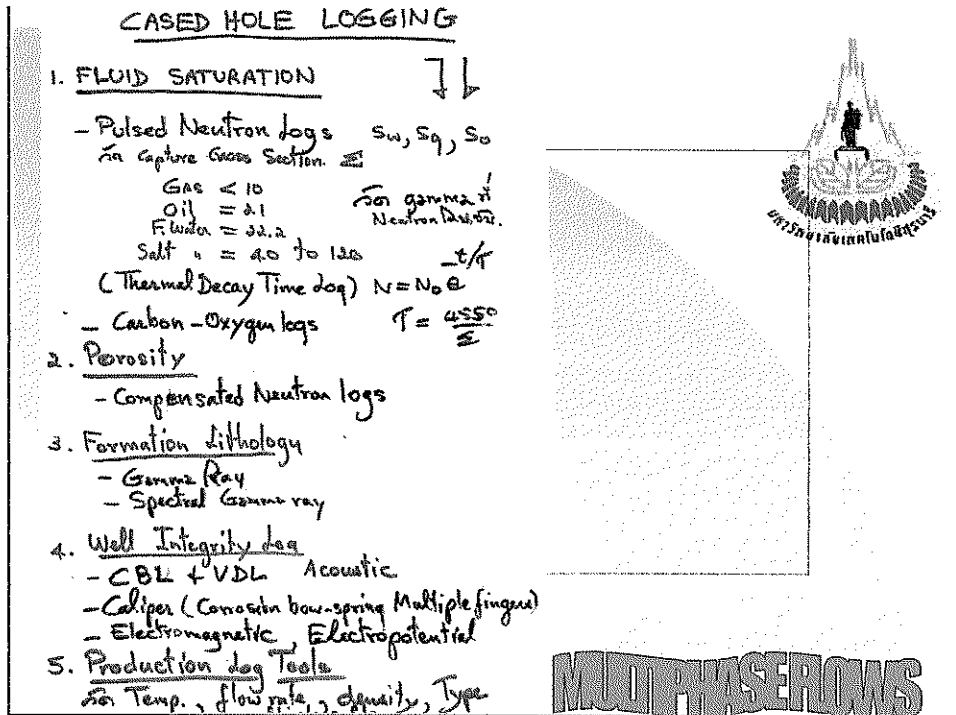 CASED HOLE LOGGING
1. FLUID SATURATION
- Pulsed Neutron Logs Sw, Sg, So
วัด Capture Cross Section Σ
GAS < 10
Oil = 21
F. Water = 22.2
Salt " = 40 to 120
วัด gamma ที่
Neutron
(Thermal Decay Time Log) N = N₀ e -t/τ
- Carbon-Oxygen logs τ = 4550/Σ
2. Porosity
- Compensated Neutron logs
3. Formation Lithology
- Gamma Ray
- Spectral Gamma ray
4. Well Integrity Log
- CBL + VDL Acoustic
- Caliper (Corrosin bow-spring Multiple fingers)
- Electromagnetic, Electropotential
5. Production Log Tools
วัด Temp., flow rate, density, Type
มหาวิทยาลัยเทคโนโลยีสุรนารี
MULTIPHASE FLOWS